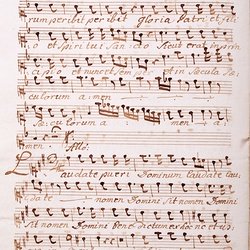 runt peribit peribit gloria Patri et fili
o et Spiritui Sancto Sicut erat in prin
cipio et nunc et semper et in sæcula sæ
culorum amen
sæculorum a men
men. Allo:
Laudate pueri Dominum laudate lau
date nomen Domini sit nomen Domini
sit nomen Domini bene dictum ex hoc nc et us